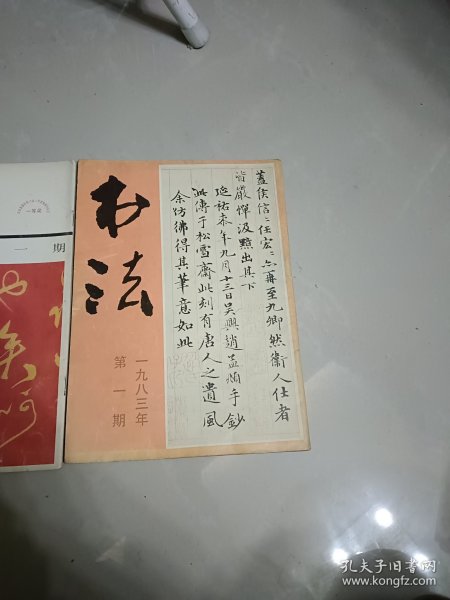 书法
一九八三年
第一期
蓋侯信〻任宏〻亦再至九卿然衛人仕者
皆嚴憚汲黯出其下
延祐柒年九月十三日吳興趙孟頫手鈔
此傳于松雪齋此刻有唐人之遺風
余仿佛得其筆意如此
一期
孔夫子旧书网
www.kongfz.com